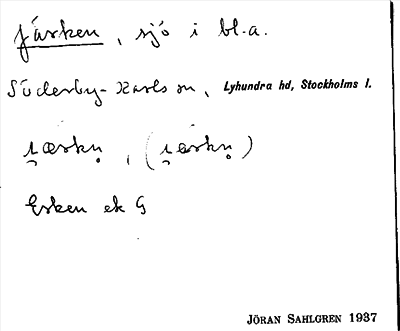 Järken, sjö i bl.a.
Söderby-Karls sn, Lyhundra hd, Stockholms l.
i̯ærkn̥, (i̯ærkn̥)
Erken ek G
JÖRAN SAHLGREN 1937